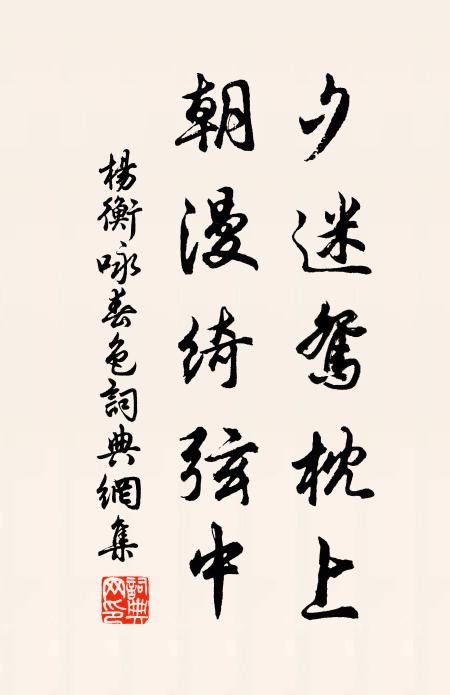 夕迷鴛枕上
朝漫綺弦中
楊衡咏春色詞典網集
詞典网印